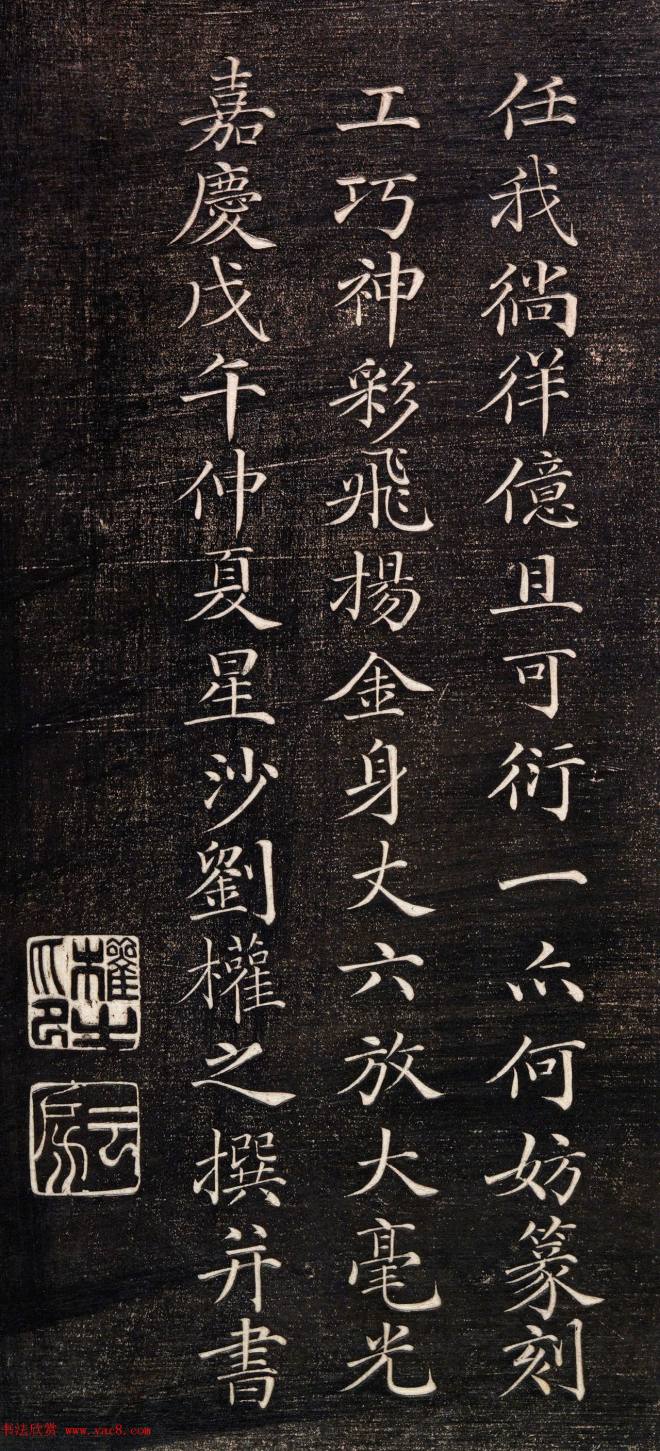 任我徜徉億且可衍一亦何妨篆刻
工巧神彩飛揚金身丈六放大毫光
嘉慶戊午仲夏星沙劉權之撰并書
權之
書法欣赏 www.yac8.com